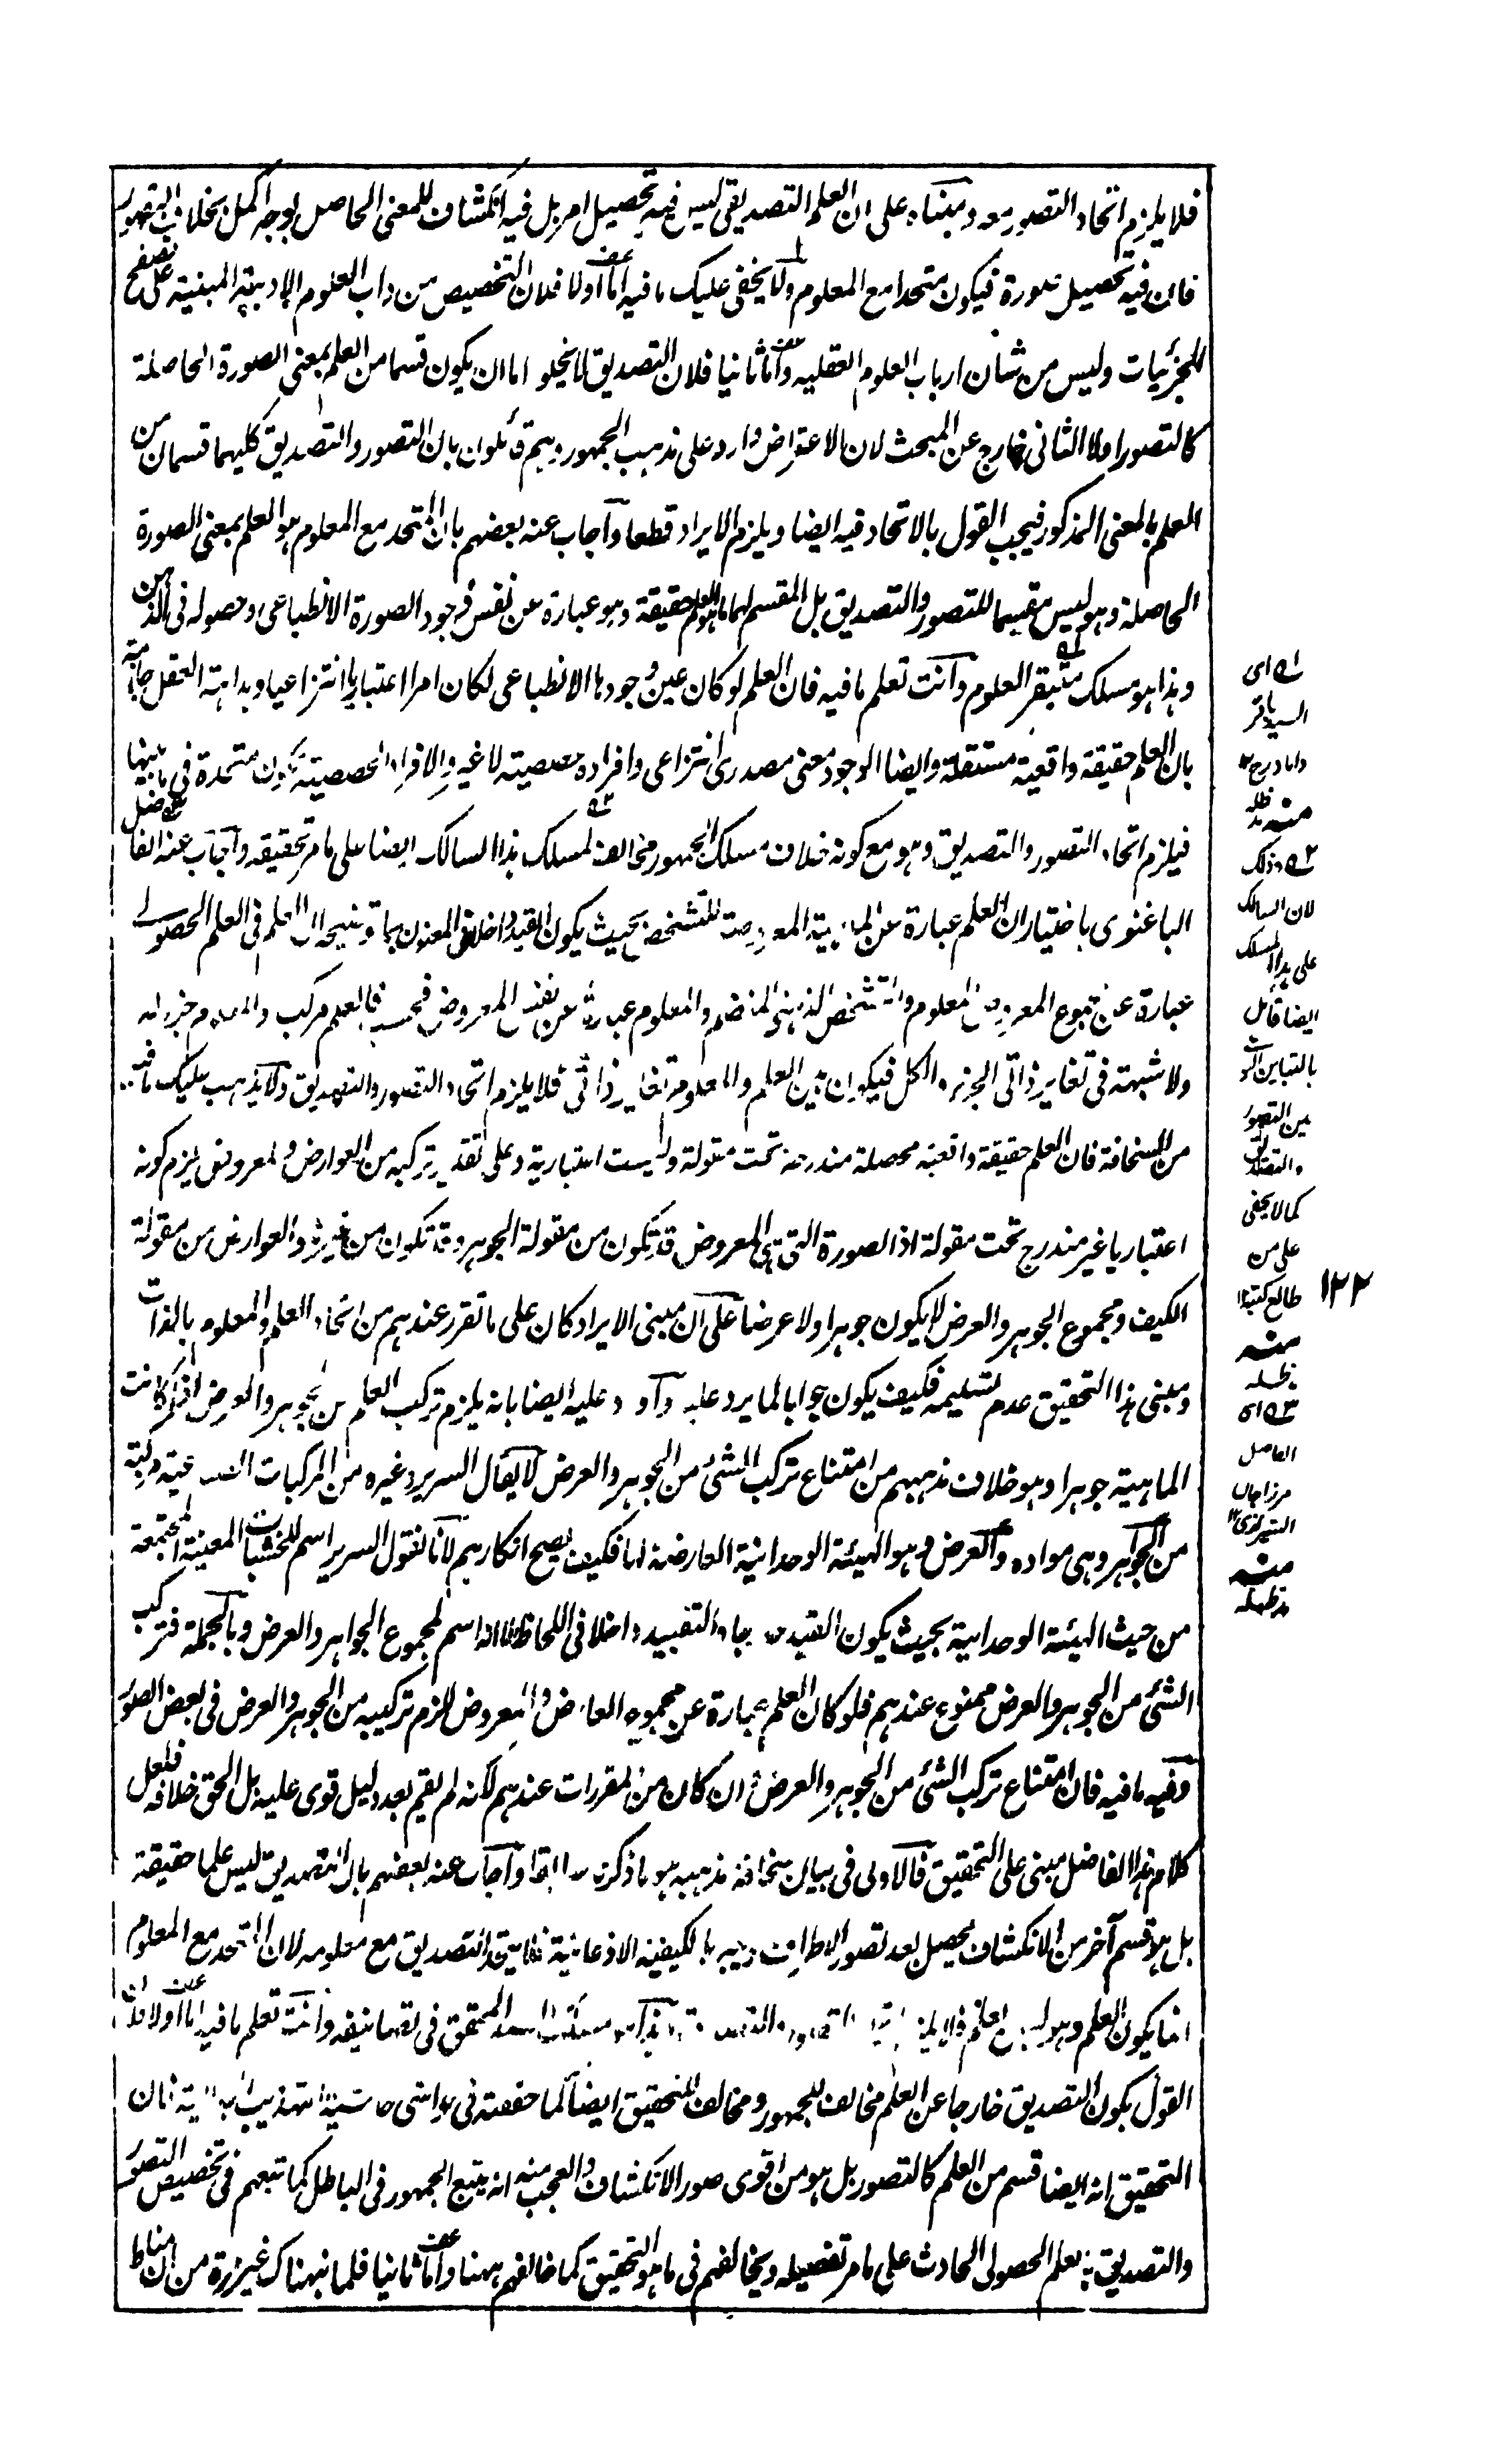 فلا يلزم اتحاد التصور معه ومبناه على ان العلم التصديقى ليس فيه تحصيل امر بل فيه انكشاف للمعنى الحاصل بوجه اكمل بخلاف التصور
فان فيه تحصيل صورة فيكون متحدا مع المعلوم ولا يخفى عليك ما فيه اما اولا فلان التخصيص من داب العلوم الادبية المبنية على تصفح
الجزئيات وليس من شان ارباب العلوم العقلية واما ثانيا فلان التصديق لا يخلو اما ان يكون قسما من العلم بمعنى الصورة الحاصلة
كالتصور اولا الثانى خارج عن المبحث لان الاعتراض وارد على مذهب الجمهور وهم قائلون بان التصور والتصديق كليهما قسمان من
العلم بالمعنى المذكور فيجب القول بالاتحاد فيه ايضا ويلزم الايراد قطعا واجاب عنه بعضهم بان المتحد مع المعلوم هو العلم بمعنى الصورة
الحاصلة وهو ليس مقسما للتصور والتصديق بل المقسم لهما ما هو العلم حقيقة وهو عبارة عن نفس وجود الصورة الانطباعى وحصوله فى الذهن
وهذا هو مسلك متبقر العلوم وانت تعلم ما فيه فان العلم لو كان عين وجودها الانطباعى لكان امرا اعتباريا انتزاعيا وبداهة العقل حاكمة
بان العلم حقيقة واقعية مستقلة وايضا الوجود معنى مصدرى انتزاعى وافراده حصصية لا غير والافراد الحصصية تكون متحدة فى ما بينها
فيلزم اتحاد التصور والتصديق وهو مع كونه خلاف مسلك الجمهور مخالف لمسلك هذا السالك ايضا على ما مر تحقيقه واجاب عنه الفاضل
الباغنوى باختيار ان العلم عبارة عن الماهية المعروضة للتشخص بحيث يكون القيد داخلا فى المعنون بها توضيحه ان العلم فى العلم الحصولى
عبارة عن مجموع المعروض المعلوم والتشخص الذهنى المنضم والمعلوم عبارة عن نفس المعروض فحسب فالعلم مركب والمعلوم جزء له
ولا شبهة فى تغاير ذاتى الجزء والكل فيكون بين العلم والمعلوم تغاير ذاتى فلا يلزم اتحاد التصور والتصديق ولا يذهب عليك ما فيه
من السخافة فان العلم حقيقة واقعية محصلة مندرجة تحت مقولة وليست اعتبارية وعلى تقدير تركبه من العوارض والمعروض يلزم كونه
اعتباريا غير مندرج تحت مقولة اذ الصورة التى هى المعروض قد تكون من مقولة الجوهر وقد تكون من غيره والعوارض من مقولة
الكيف ومجموع الجوهر والعرض لا يكون جوهرا ولا عرضا على ان مبنى الايراد كان على ما تقرر عندهم من اتحاد العلم والمعلوم بالذات
ومبنى هذا التحقيق عدم تسليمه فكيف يكون جوابا لما يرد عليه واورد عليه ايضا بانه يلزم تركب العلم من الجوهر والعرض اذا كانت
الماهية جوهرا وهو خلاف مذهبهم من امتناع تركب الشئ من الجوهر والعرض لا يقال السرير وغيره من المركبات الصناعية مركبة
من الجواهر وهى مواده والعرض وهو الهيئة الوحدانية العارضة لها فكيف يصح انكارهم لانا نقول السرير اسم للخشبات المعينة المجتمعة
من حيث الهيئة الوحدانية بحيث يكون القيد التقييد داخلا فى اللحاظ لا انه اسم لمجموع الجواهر والعرض وبالجملة فتركب
الشئ من الجوهر والعرض ممنوع عندهم فلو كان العلم عبارة عن مجموع العارض والمعروض للزم تركيبه من الجوهر والعرض فى بعض الصور
وفيه ما فيه فان امتناع تركب الشئ من الجوهر والعرض وان كان من المقررات عندهم لكنه لم يقم بعد دليل قوى عليه بل الحق خلافه فلعل
كلام هذا الفاضل مبنى على التحقيق فالاولى فى بيان سخافة مذهبه هو ما ذكرت سابقا واجاب عنه بعضهم بان التصديق ليس علما حقيقة
بل هو قسم آخر من الانكشاف يحصل بعد تصور الاطراف بالكيفية الاذعانية التصديق مع معلومه لان المتحد مع المعلوم
انما يكون العلم وهو ليس بعلم فلا يلزم اتحاد التصور والتصديق المحقق فى تصانيفه وانت تعلم ما فيه اما اولا فلان
القول بكون التصديق خارجا عن العلم مخالف للجمهور ومخالف للتحقيق ايضا كما حققته فى حواشى حاشية التهذيب فان
التحقيق انه ايضا قسم من العلم كالتصور بل هو من اقوى صور الانكشاف والعجب منه انه يتبع الجمهور فى الباطل كما تبعهم فى تخصيص التصور
والتصديق بالعلم الحصولى الحادث على ما مر تفصيله ويخالفهم فى ما هو التحقيق كما خالفهم ههنا واما ثانيا فلما نبهناك غير مرة من ان مناط
اى
السيد باقر
داماد رح ١٢
منه
مد ظله
وذلك
لان السالك
على هذا المسلك
ايضا قائل
بالتباين
بين التصور
والتصديق
كما لا يخفى
على من
طالع كتبه ١٢
منه
مد ظله
اى
الفاضل
مرزا جان
الشيرازى ١٢
منه
مد ظله
١٢٢